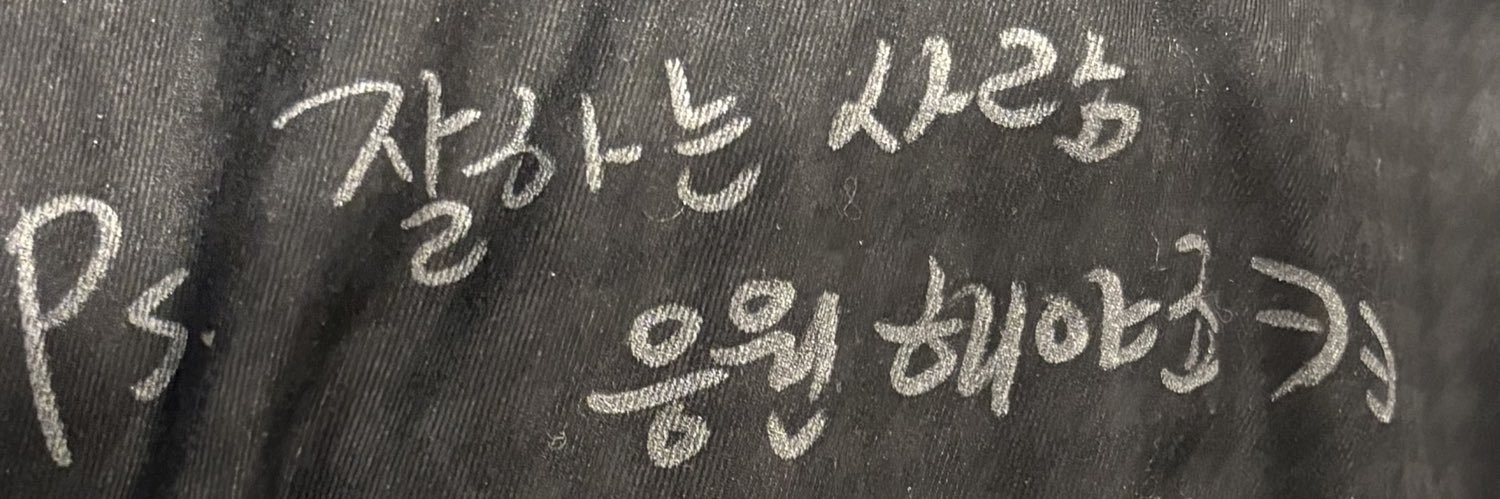 Ps. 잘하는 사람
응원해야죠 ㅋㅋ